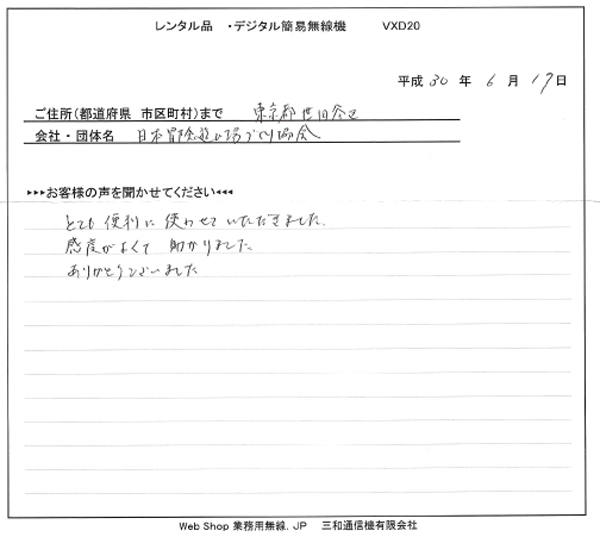 レンタル品 ・デジタル簡易無線機 VXD20
平成 30 年 6 月 17 日
ご住所(都道府県 市区町村)まで 東京都世田谷区
会社・団体名 日本冒険遊び場づくり協会
▸▸▸お客様の声を聞かせてください◂◂◂
とても便利に使わせていただきました。
感度がよくて 助かりました
ありがとうございました
Web Shop 業務用無線.JP 三和通信機有限会社